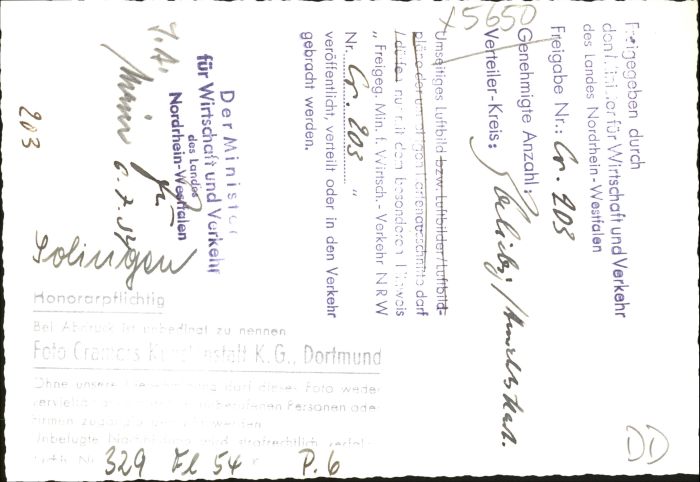 Freigegeben durch
den Minister für Wirtschaft und Verkehr
des Landes Nordrhein-Westfalen
Freigabe Nr.: Cr. 203
Genehmigte Anzahl:
Verteiler-Kreis: Beliebig /
x5650
Umseitiges Luftbild bzw. Luftbilder/Luftbild-
pläne der umseitigen Kartenausschnitte darf
/ dürfen nur mit dem besonderen Hinweis
„ Freigeg. Min. f. Wirtsch.- Verkehr NRW
Nr. Cr. 203 "
veröffentlicht, verteilt oder in den Verkehr
gebracht werden.
Der Minister
für Wirtschaft und Verkehr
des Landes
Nordrhein-Westfalen
J. A.
6.7.54
203
Solingen
Honorarpflichtig
Bei Abdruck ist unbedingt zu nennen
Foto Cramers Kunstanstalt K.G., Dortmund
Ohne unsere Genehmigung darf dieses Foto weder
vervielfältigt unberufenen Personen oder
Firmen zugängig werden
Unbefugte Nachbildung wird strafrechtlich verfolgt
Nr. 329 Fl 54 P. 6
DD